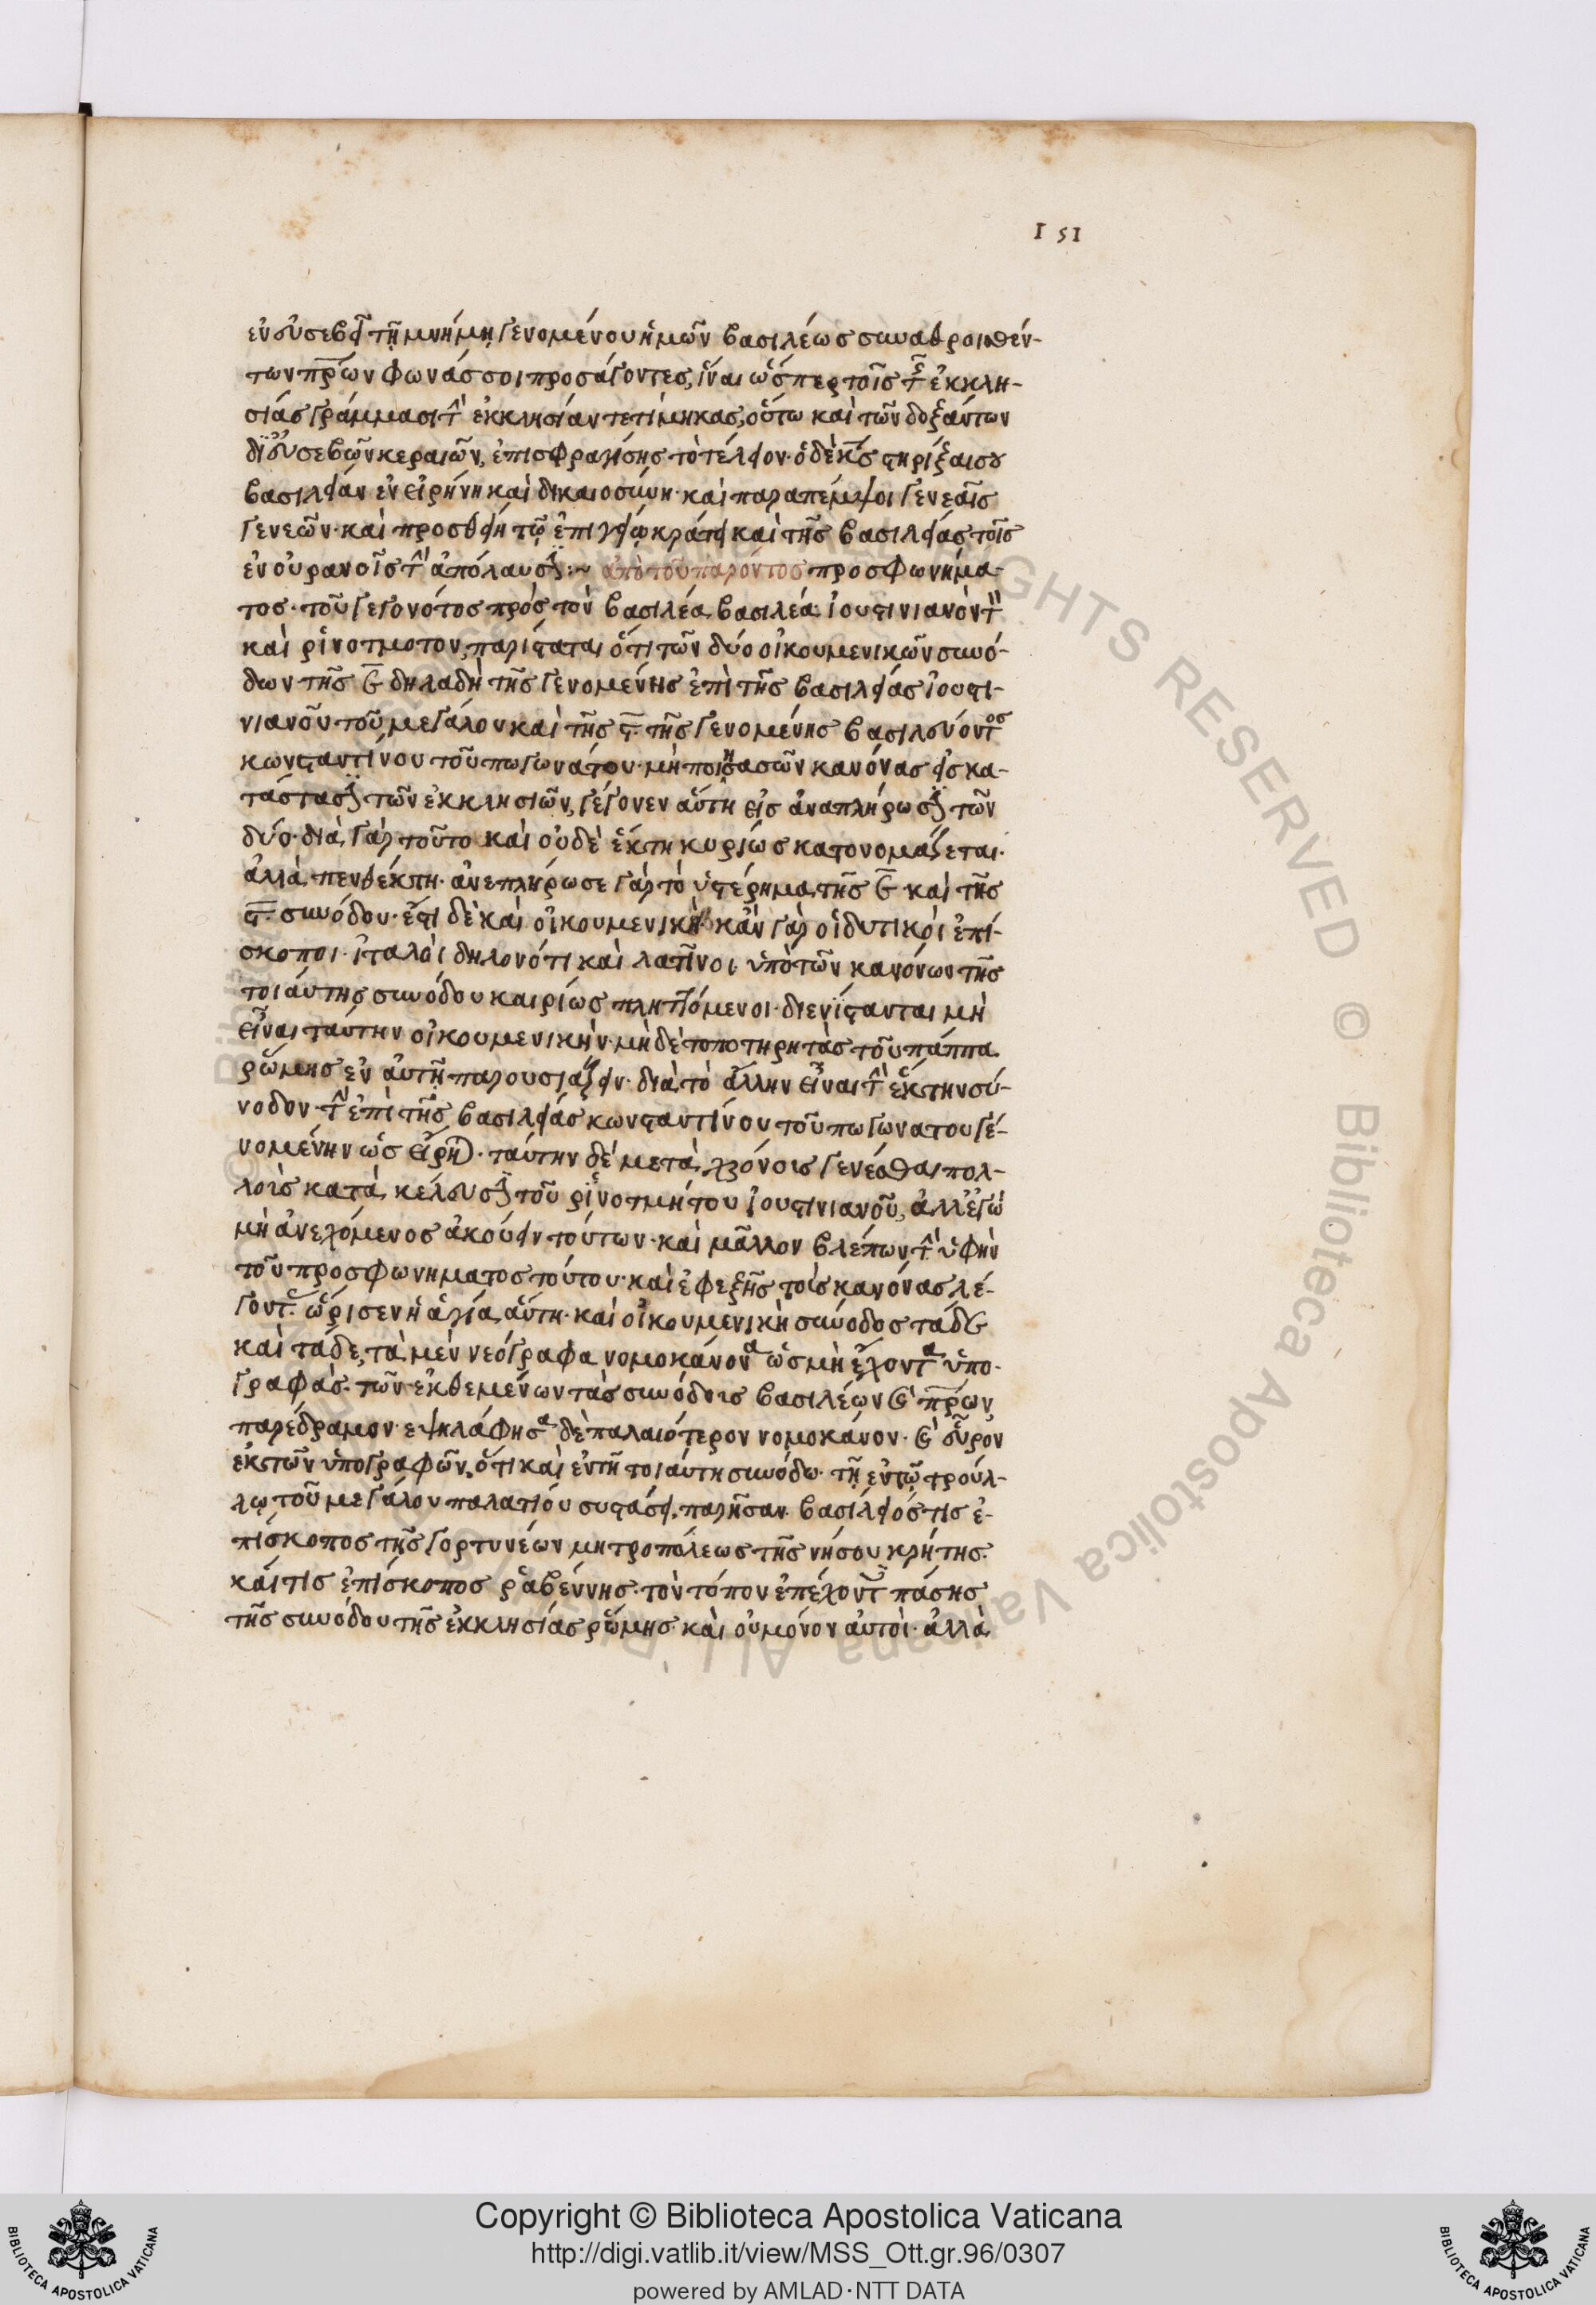 151
ἐν εὐσεβεῖ τῇ μνήμῃ γενομένου ἡμῶν βασιλέως συναθροισθέν-
των πρων φωνάς σοι προσάγοντες, ἵναι ὥσπερ τοῖς τῆς ἐκκλη-
σίας γράμμασι τὴν ἐκκλησίαν τετίμηκας, οὕτω καὶ τῶν δοξάντων
δι εὐσεβῶν κεραιῶν, ἐπισφραγίσης τὸ τέλειον· ὁ δὲ κς στηρίξαι σου
βασιλείαν ἐν εἰρήνη καὶ δικαιοσύνη· καὶ παραπέμψοι γενεαῖς
γενεῶν· καὶ προσθείη τῷ ἐπιγείῳ κράτει καὶ τῆς βασιλείας τοῖς
ἐν οὐρανοῖς τὴν ἀπόλαυσιν :~ ἀπὸ τοῦ παρόντος προσφωνήμα-
τος· τοῦ γεγονότος πρὸς τὸν βασιλέα βασιλέα ἰουστινιανὸν τὸν
καὶ ῥινότμοτον, παρίσταται ὅτι τῶν δύο οἰκουμενικῶν συνό-
δων τῆς ε δηλαδὴ τῆς γενομένης ἐπὶ τῆς βασιλείας ἰουστι-
νιανοῦ τοῦ μεγάλου καὶ τῆς ϛ· τῆς γενομένης βασιλεύοντος
κωνσταντίνου τοῦ πωγωνάτου· μὴ ποιησασῶν κανόνας εἰς κα-
τάστασιν τῶν ἐκκλησιῶν, γέγονεν αὕτη εἰς ἀναπλήρωσιν τῶν
δύο· διὰ γὰρ τοῦτο καὶ οὐδὲ ἕκτη κυρίως κατονομάζεται·
ἀλλὰ πενθέκτη· ἀνεπλήρωσε γὰρ τὸ ὑστέρημα τῆς ε καὶ τῆς
ϛ· συνόδου· ἔστι δὲ καὶ οἰκουμενική· κἂν γὰρ οἱ δυτικοὶ ἐπί-
σκοποι· ἰταλοὶ δηλονότι καὶ λατῖνοι ὑπὸ τῶν κανόνων τῆς
τοιαύτης συνόδου καιρίως πληττόμενοι· διενίστανται μὴ
εἶναι ταύτην οἰκουμενικήν· μὴ δὲ τοποτηρητὰς τοῦ πάππα
ῥώμης ἐν αὐτῇ παρουσιάζειν· διὰ τὸ ἄλλην εἶναι τὴν ἕκτην σύ-
νοδον τὴν ἐπὶ τῆς βασιλείας κωνσταντίνου τοῦ πωγωνάτου γε-
νομένην ὡς εἴρηται· ταύτην δὲ μετὰ χρόνους γενέσθαι πολ-
λοὺς κατὰ κέλευσιν τοῦ ῥινοτμήτου ἰουστινιανοῦ, ἀλλ ἐγὼ
μὴ ἀνεχόμενος ἀκούειν τούτων· καὶ μᾶλλον βλέπων τὴν ὑφὴν
τοῦ προσφωνήματος τούτου· καὶ ἐφεξῆς τοὺς κανόνας λέ-
γοντας· ὥρισεν ἡ ἁγία αὕτη· καὶ οἰκουμενικὴ σύνοδος τάδε
καὶ τάδε, τὰ μὲν νεόγραφα νομοκάνονα ὡς μὴ ἔχοντα ὑπο-
γραφάς· τῶν ἐκθεμένων τὰς συνόδους βασιλέων καὶ πρων
παρέδραμον· ἐψηλάφησα δὲ παλαιότερον νομοκάνον· καὶ εὗρον
ἐκ τῶν ὑπογραφῶν, ὅτι καὶ ἐν τῇ τοιαύτη συνόδω· τῇ ἐν τῷ τρούλ-
λῳ τοῦ μεγάλου παλατίου συστάσει, παρῆσαν βασίλειός τις ἐ-
πίσκοπος τῆς γορτυνέων μητροπόλεως τῆς νήσου κρήτης·
καί τις ἐπίσκοπος ῥαβέννης· τὸν τόπον ἐπέχοντες πάσης
τῆς συνόδου τῆς ἐκκλησίας ῥώμης· καὶ οὐ μόνον αὐτοὶ· ἀλλὰ
© Biblioteca Apostolica Vaticana ALL RIGHTS RESERVED
Copyright © Biblioteca Apostolica Vaticana
http://digi.vatlib.it/view/MSS_Ott.gr.96/0307
powered by AMLAD·NTT DATA
BIBLIOTECA APOSTOLICA VATICANA
BIBLIOTECA APOSTOLICA VATICANA